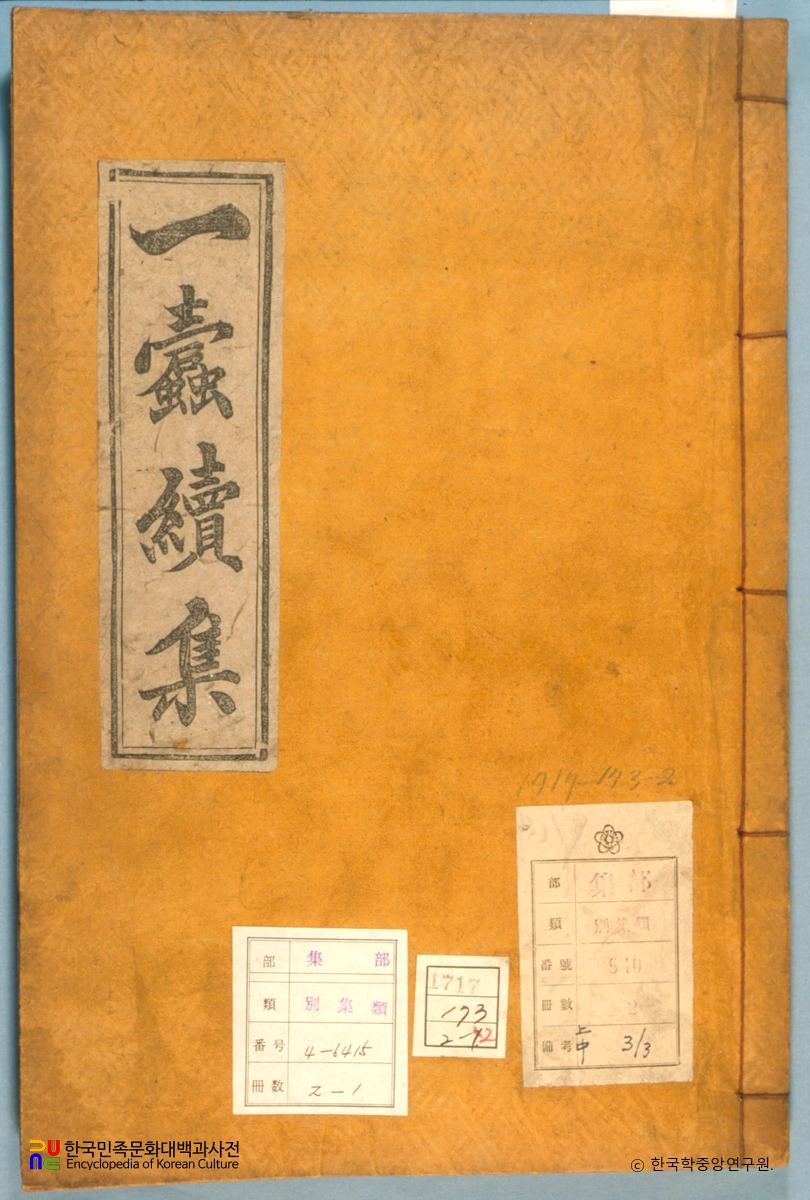 一蠹續集
1717-173-2
部 集部
類 別集類
番號 940
冊數 2
備考 上中 3/3
部 集部
類 別集類
番号 4-6415
冊数 2-1
1717
173
한국민족문화대백과사전
Encyclopedia of Korean Culture
© 한국학중앙연구원.